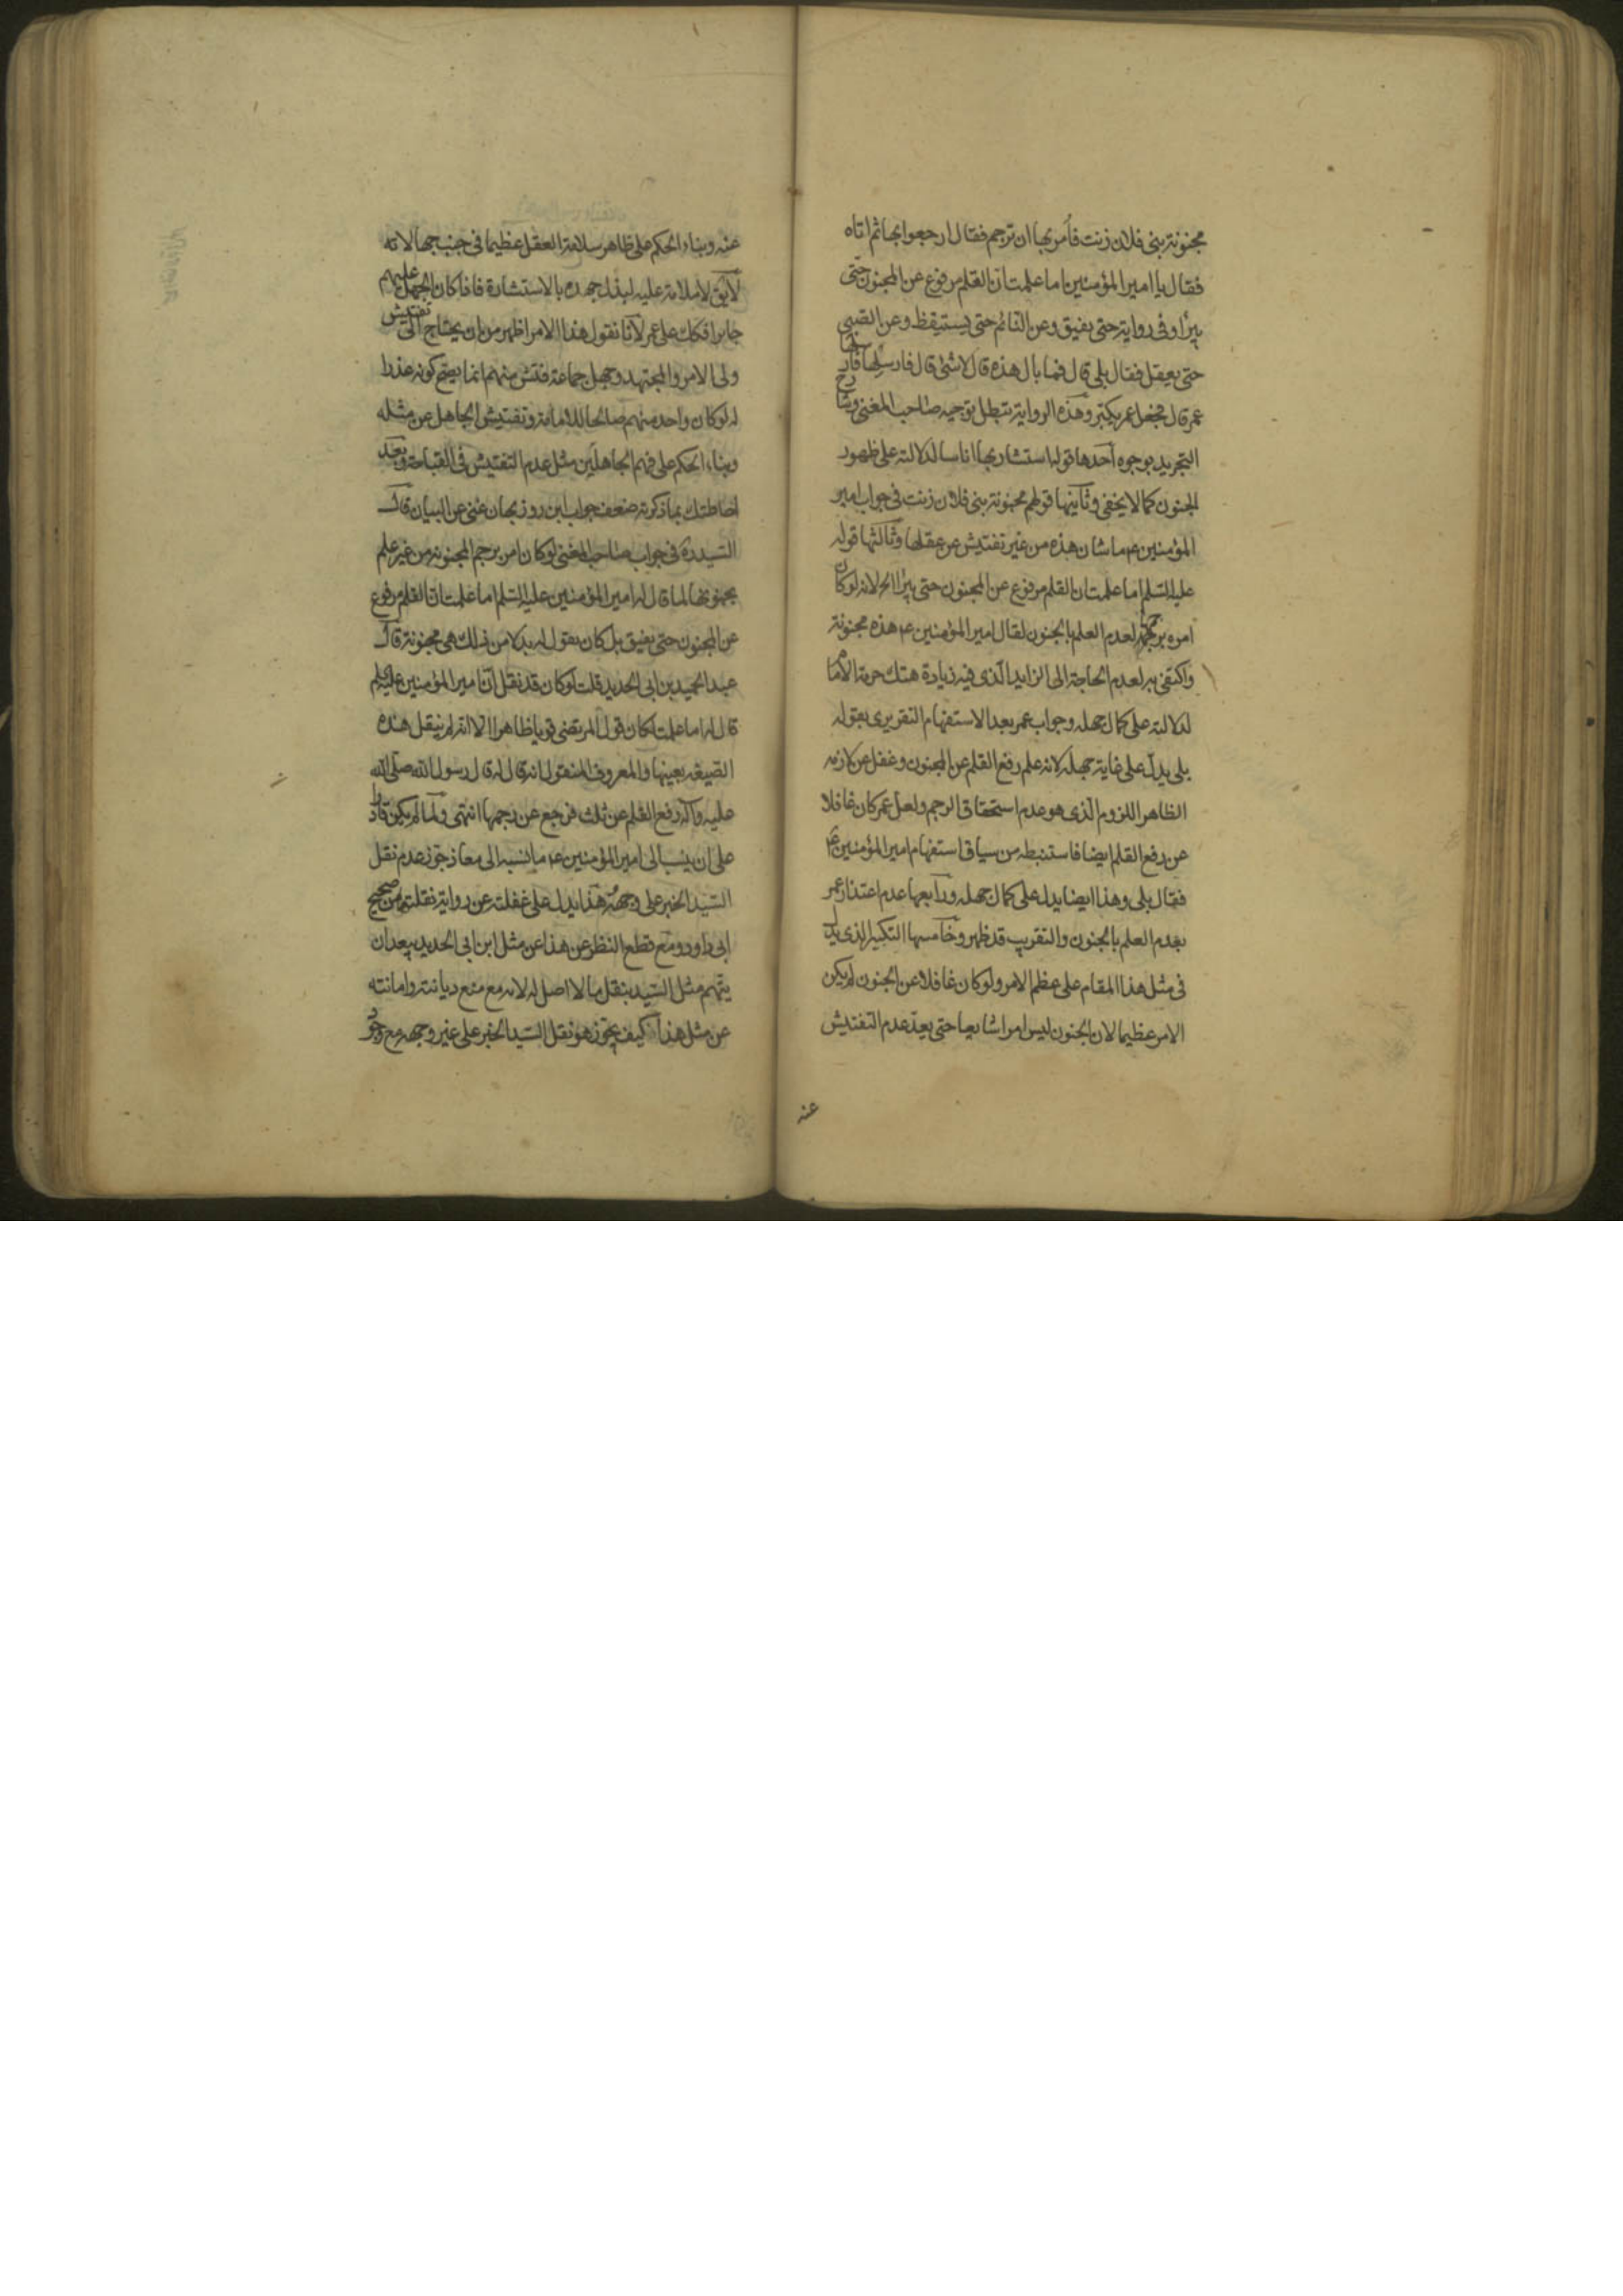 مجنونة بنى فلان زنت فأمر بها ان ترجم فقال ارجعوا بها ثم اتاه
فقال يا امير المؤمنين اما علمت ان القلم مرفوع عن المجنون حتى
يبرأ وفى رواية حتى يفيق وعن النائم حتى يستيقظ وعن الصبى
حتى يعقل فقال بلى قال فما بال هذه قال لا شئ قال فارسلها فارسلها
عمر قال فجعل عمر يكبر وهذه الرواية تبطل توجيه صاحب المغنى وشارح
التجريد بوجوه احدها قوله استشار بها اناسا لدلالته على ظهور
الجنون كما لا يخفى وثانيها قولهم مجنونة بنى فلان زنت فى جواب امير
المؤمنين ع ما شان هذه من غير تفتيش عن عقلها وثالثها قوله
عليه السلم اما علمت ان القلم مرفوع عن المجنون حتى يبرأ الخ لانه لو كان
امره برجمها لعدم العلم بالجنون لقال امير المؤمنين ع هذه مجنونة
واكتفى به لعدم الحاجة الى الزايد الذى فيه زيادة هتك حرمة الامام
لدلالته على كمال جهله وجواب عمر بعد الاستفهام التقريرى بقوله
بلى يدل على غاية جهله لانه علم رفع القلم عن المجنون وغفل عن لازمه
الظاهر اللزوم الذى هو عدم استحقاق الرجم ولعل عمر كان غافلا
عن رفع القلم ايضا فاستنبطه من سياق استفهام امير المؤمنين ع
فقال بلى وهذا ايضا يدل على كمال جهله ورابعها عدم اعتذار عمر
بعدم العلم بالجنون والتقريب قد ظهر وخامسها التكبير الذى يدل
فى مثل هذا المقام على عظم الامر ولو كان غافلا عن الجنون لم يكن
الامر عظيما لان الجنون ليس امرا شايعا حتى يعد عدم التفتيش
عنه
عنه وبناء الحكم على ظاهر سلامة العقل عظيما فى جنب جهالاته
لا يق لا ملامة عليه لبذل جهده بالاستشارة فاذا كان الجهل عليهم
جايرا فكك على عمر لانا نقول هذا الامر اظهر من ان يحتاج الى تفتيش
ولى الامر والمجتهد وجهل جماعة فتش منهم انما يصح كونه عذرا
له لو كان واحد منهم صالحا للامامة وتفتيش الجاهل عن مثله
وبناء الحكم على فهم الجاهلين مثل عدم التفتيش فى القباحة وبعد
احاطتك بما ذكرته ضعف جواب ابن روزبهان غنى عن البيان قال
السيد ره فى جواب صاحب المغنى لو كان امر برجم المجنونة من غير علم
بجنونها لما قال له امير المؤمنين عليه السلم اما علمت ان القلم مرفوع
عن المجنون حتى يفيق بل كان يقول له بدلا من ذلك هى مجنونة قال
عبد الحميد بن ابى الحديد قلت لو كان قد نقل ان امير المؤمنين عليه السلم
قال له اما علمت لكان قول المرتضى قويا ظاهرا الا انه لم ينقل هذه
الصيغه بعينها والمعروف المنقول انه قال له قال رسول الله صلى الله
عليه وآله رفع القلم عن ثلث فرجع عن رجمها انتهى ولما لم يكن قادرا
على ان ينسب الى امير المؤمنين ع ما نسبه الى معاذ جوز عدم نقل
السيد الخبر على وجهه هذا يدل على غفلته عن رواية نقلتها من صحيح
ابى داود ومع قطع النظر عن هذا عن مثل ابن ابى الحديد بعد ان
يتهم مثل السيد بنقل ما لا اصل له لانه مع منع ديانته وامانته
عن مثل هذا كيف يجوز هو نقل السيد الخبر على غير وجهه مع وجود